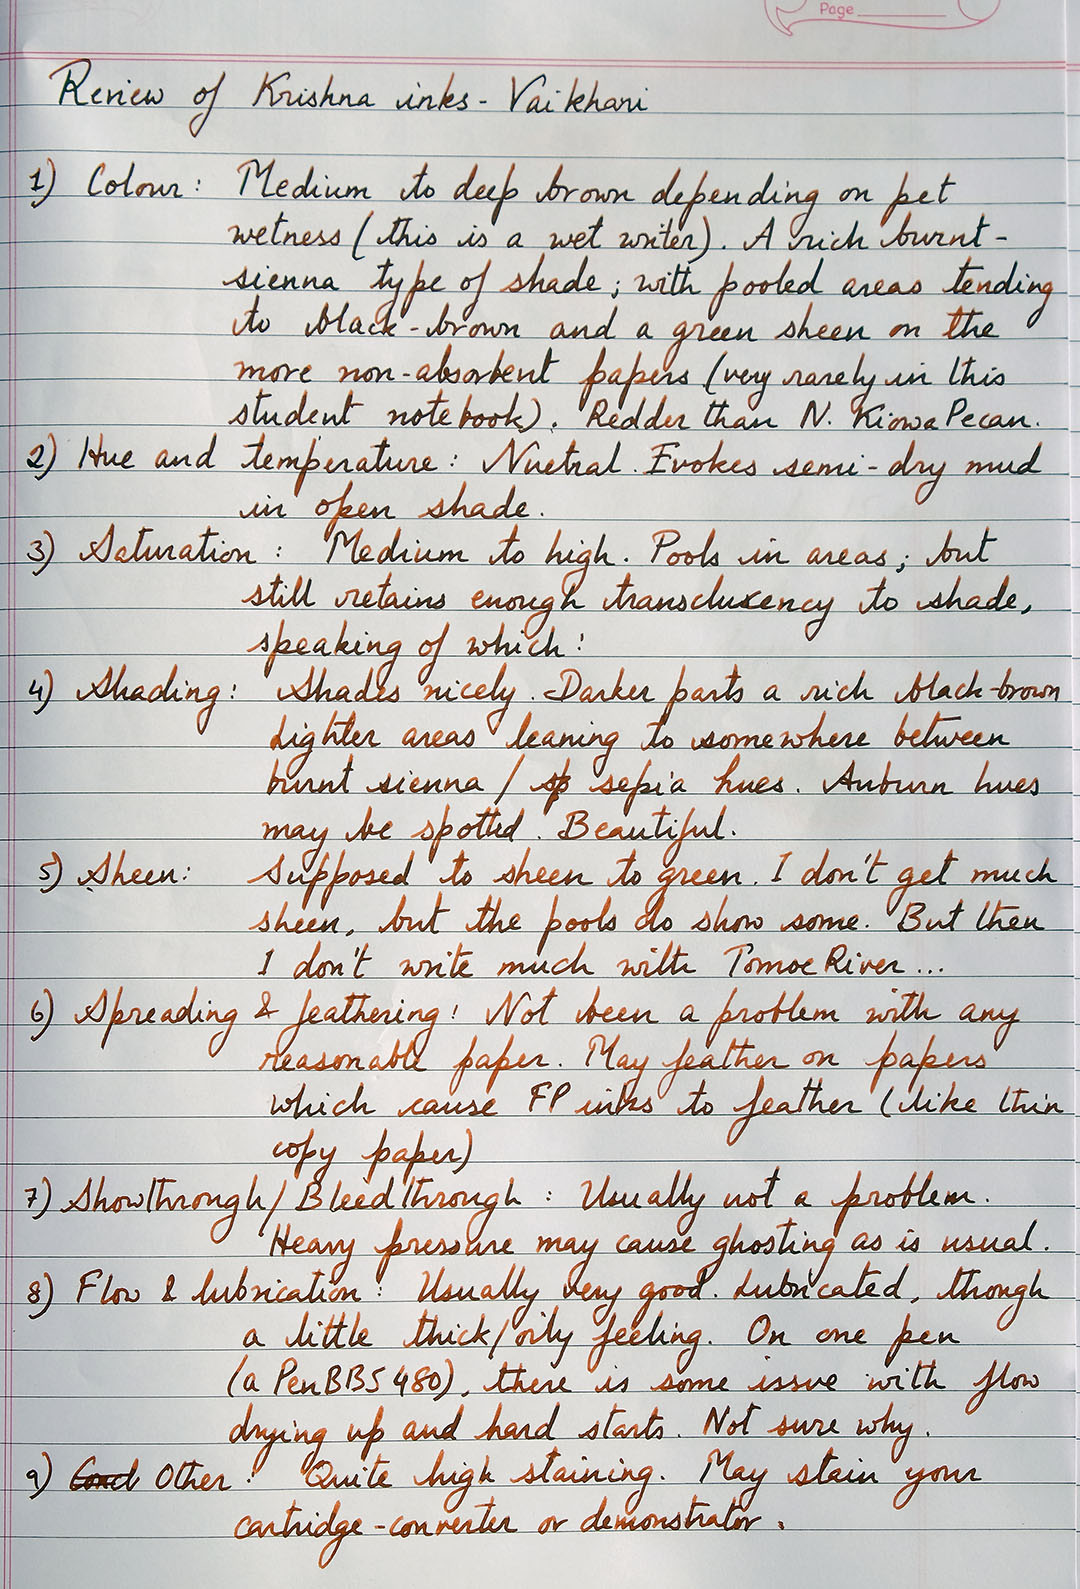 Page
Review of Krishna inks - Vaikhari
1) Colour: Medium to deep brown depending on pet
wetness (this is a wet writer). A rich burnt-
sienna type of shade; with pooled areas tending
to black-brown and a green sheen on the
more non-absorbent papers (very rarely in this
student notebook). Redder than N. Kiowa Pecan.
2) Hue and temperature: Nuetral. Evokes semi-dry mud
in open shade.
3) Saturation: Medium to high. Pools in areas; but
still retains enough transcluxency to shade,
speaking of which:
4) Shading: Shades nicely. Darker parts a rich black-brown
Lighter areas leaning to somewhere between
burnt sienna / sepia hues. Auburn hues
may be spotted. Beautiful.
5) Sheen: Supposed to sheen to green. I don't get much
sheen, but the pools do show some. But then
I don't write much with Tomoe River...
6) Spreading & feathering: Not been a problem with any
reasonable paper. May feather on papers
which cause FP inks to feather (like thin
copy paper)
7) Showthrough/Bleedthrough: Usually not a problem.
Heavy pressure may cause ghosting as is usual.
8) Flow & lubrication: Usually very good. Lubricated, though
a little thick/oily feeling. On one pen
(a PenBBS 480), there is some issue with flow
drying up and hard starts. Not sure why.
9) Other: Quite high staining. May stain your
cartridge-converter or demonstrator.